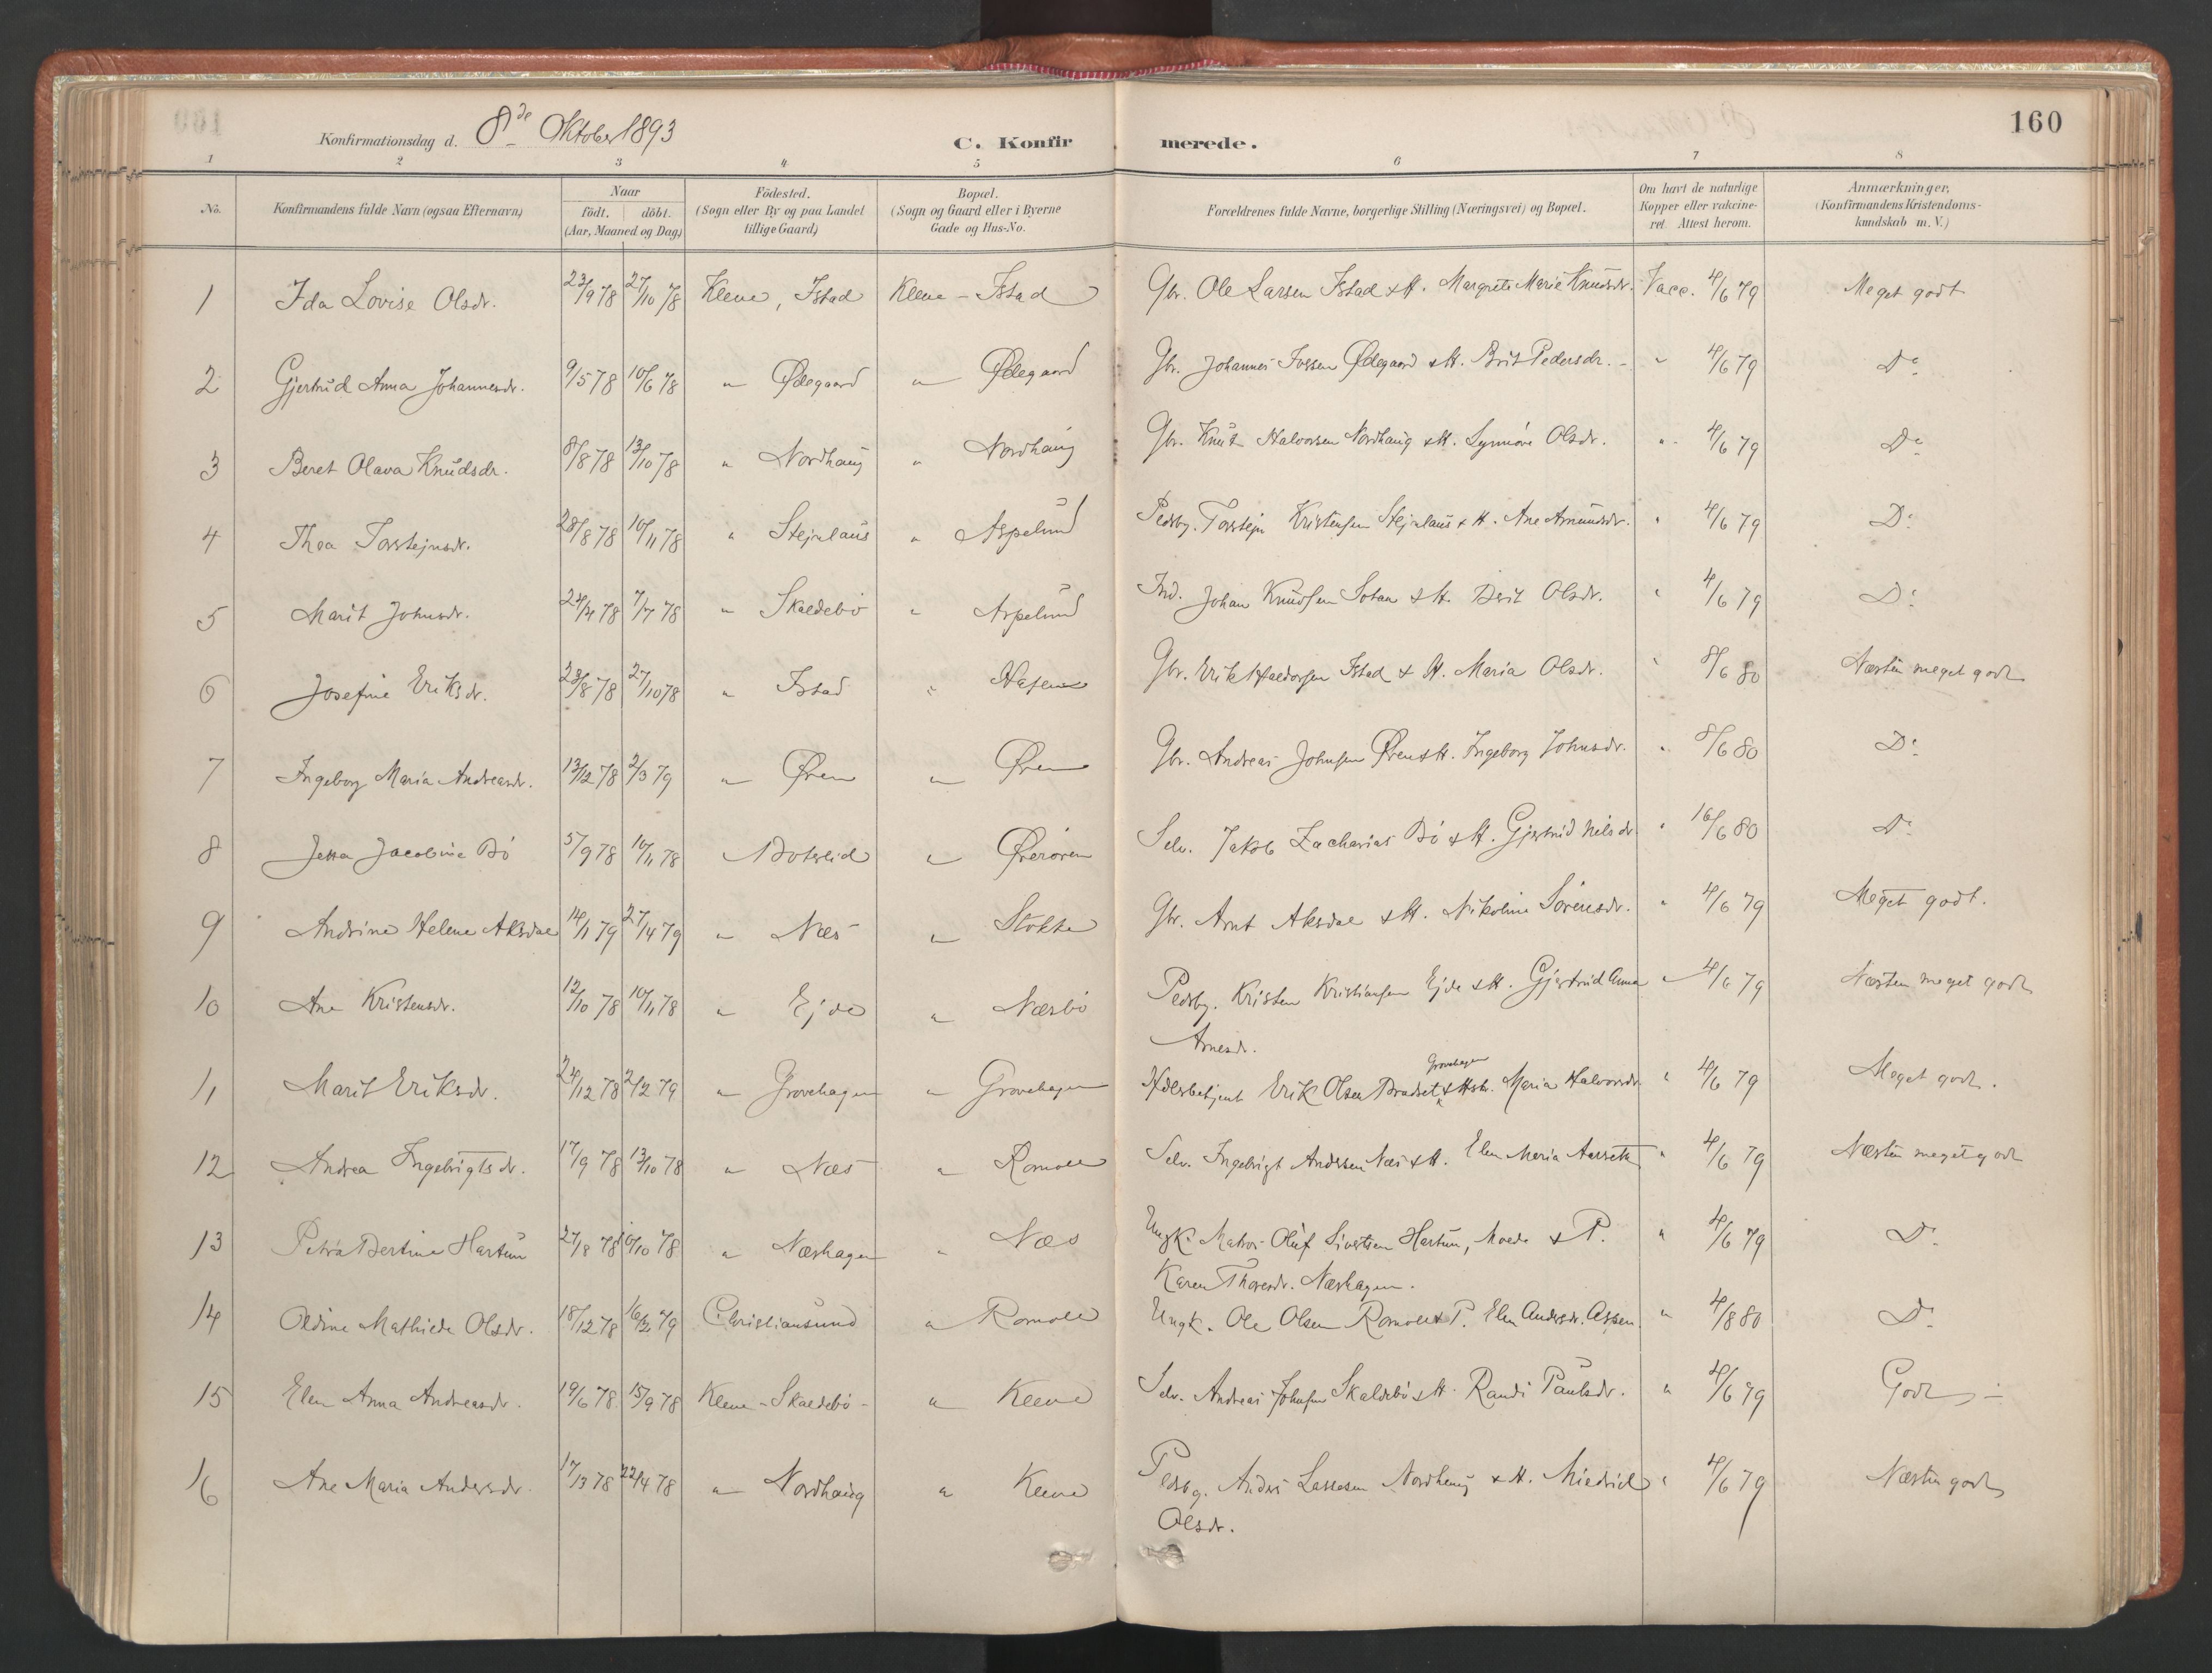 160
Konfirmationsdag d. 8de Oktober 1893 C. Konfir merede.
1 2 3 4 5 6 7 8
No. Konfirmandens fulde Navn (ogsaa Efternavn) Naar födt. döbt. (Aar, Maaned og Dag) Födested. (Sogn eller By og paa Landet tillige Gaard) Bopæl. (Sogn og Gaard eller i Byerne Gade og Hus-No. Forældrenes fulde Navne, borgerlige Stilling (Næringsvei) og Bopæl. Om havt de naturlige Kopper eller vakcineret. Attest herom. Anmærkninger, (Konfirmandens Kristendomskundskab m. V.)
1 Ida Lovise Olsdr. 23/9 78 27/10 78 Kleve, Istad Kleve - Istad Gbr. Ole Larsen Istad & H. Margrete Marie Knudsdr. Vacc. 4/6 79 Meget godt
2 Gjertrud Anna Johannesdr. 9/5 78 10/6 78 " Ødegaard " Ødegaard Gbr. Johannes Iversen Ødegaard & H. Brit Pedersdr. - " 4/6 79 Do
3 Beret Olava Knudsdr. 8/8 78 13/10 78 " Nordhaug " Nordhaug Gbr. Knut Halvorsen Nordhaug & H. Synnöve Olsdr. " 4/6 79 Do
4 Thea Torstejnsdr. 28/8 78 10/11 78 " Stejnlaus " Aspelund Pedsbg. Torstejn Kristensen Stejnlaus & H. Ane Amundsdr. " 4/6 79 Do
5 Marit Johnsdr. 24/4 78 7/7 78 " Skaldebö " Aspelund Ind. Johan Knudsen Sotan & H. Berit Olsdr. " 4/6 79 Do
6 Josefine Eriksdr. 23/8 78 27/10 78 " Istad " Gbr. Erik Haldorsen Istad & H. Maria Olsdr. " 8/6 80 Næsten meget godt
7 Ingeborg Maria Andreasdr. 13/12 78 2/3 79 " Øren " Øren Gbr. Andreas Johnsen Øren & H. Ingeborg Johnsdr. " 8/6 80 Do
8 Jetta Jacobine Bö 5/9 78 10/11 78 Botslid " Örerören Selv. Jakob Zacharias Bö & H. Gjertrud Nilsdr " 16/6 80 Do
9 Andrine Helene Aksdal 14/1 79 27/4 79 " Næs " Stokke Gbr. Arnt Aksdal & H. Nikoline Sörensdr. " 4/6 79 Meget godt.
10 Ane Kristensdr. 12/10 78 10/11 78 " Ejde " Næsbö Pedsbg. Kristen Kristiansen Ejde & H. Gjertrud Anna " 4/6 79 Næsten meget godt
Arnesdr.
11 Marit Eriksdr. 24/12 78 2/2 79 " Grovehagen " Grovehagen Erik Olsen Bradset & Hstr. Maria Halvorsdr. " 4/6 79 Meget godt.
Grovehagen
12 Andrea Ingebrigtsdr. 17/9 78 13/10 78 " Næs " Romoll Selv. Ingebrigt Andersen Næs & H. Elen Maria Aarseth " 4/6 79 Næsten meget godt
13 Petra Bertine Hartun 27/8 78 6/10 78 " Næshagen " Næs Ungk. Matros Oluf Sivertsen Hartun, Molde & P. " 4/6 79 Do
Karen Thoresdr. Næshagen.
14 Oldine Mathilde Olsdr. 18/12 78 16/2 79 Christiansund " Romoll Ungk. Ole Olsen Romoll & P. Elen Andersdr. Aspen " 4/8 80 Do
15 Elen Anna Andreasdr. 19/6 78 15/9 78 Kleve - Skaldebö - " Kleve Selv. Andreas Johnsen Skaldebö & H. Randi Paulsdr. " 4/6 79 Godt -
16 Ane Maria Andersdr. 17/3 78 22/4 78 " Nordhaug " Kleve Pedsbg. Anders Lassesen Nordhaug & H. " 4/6 79 Næsten godt
Olsdr.